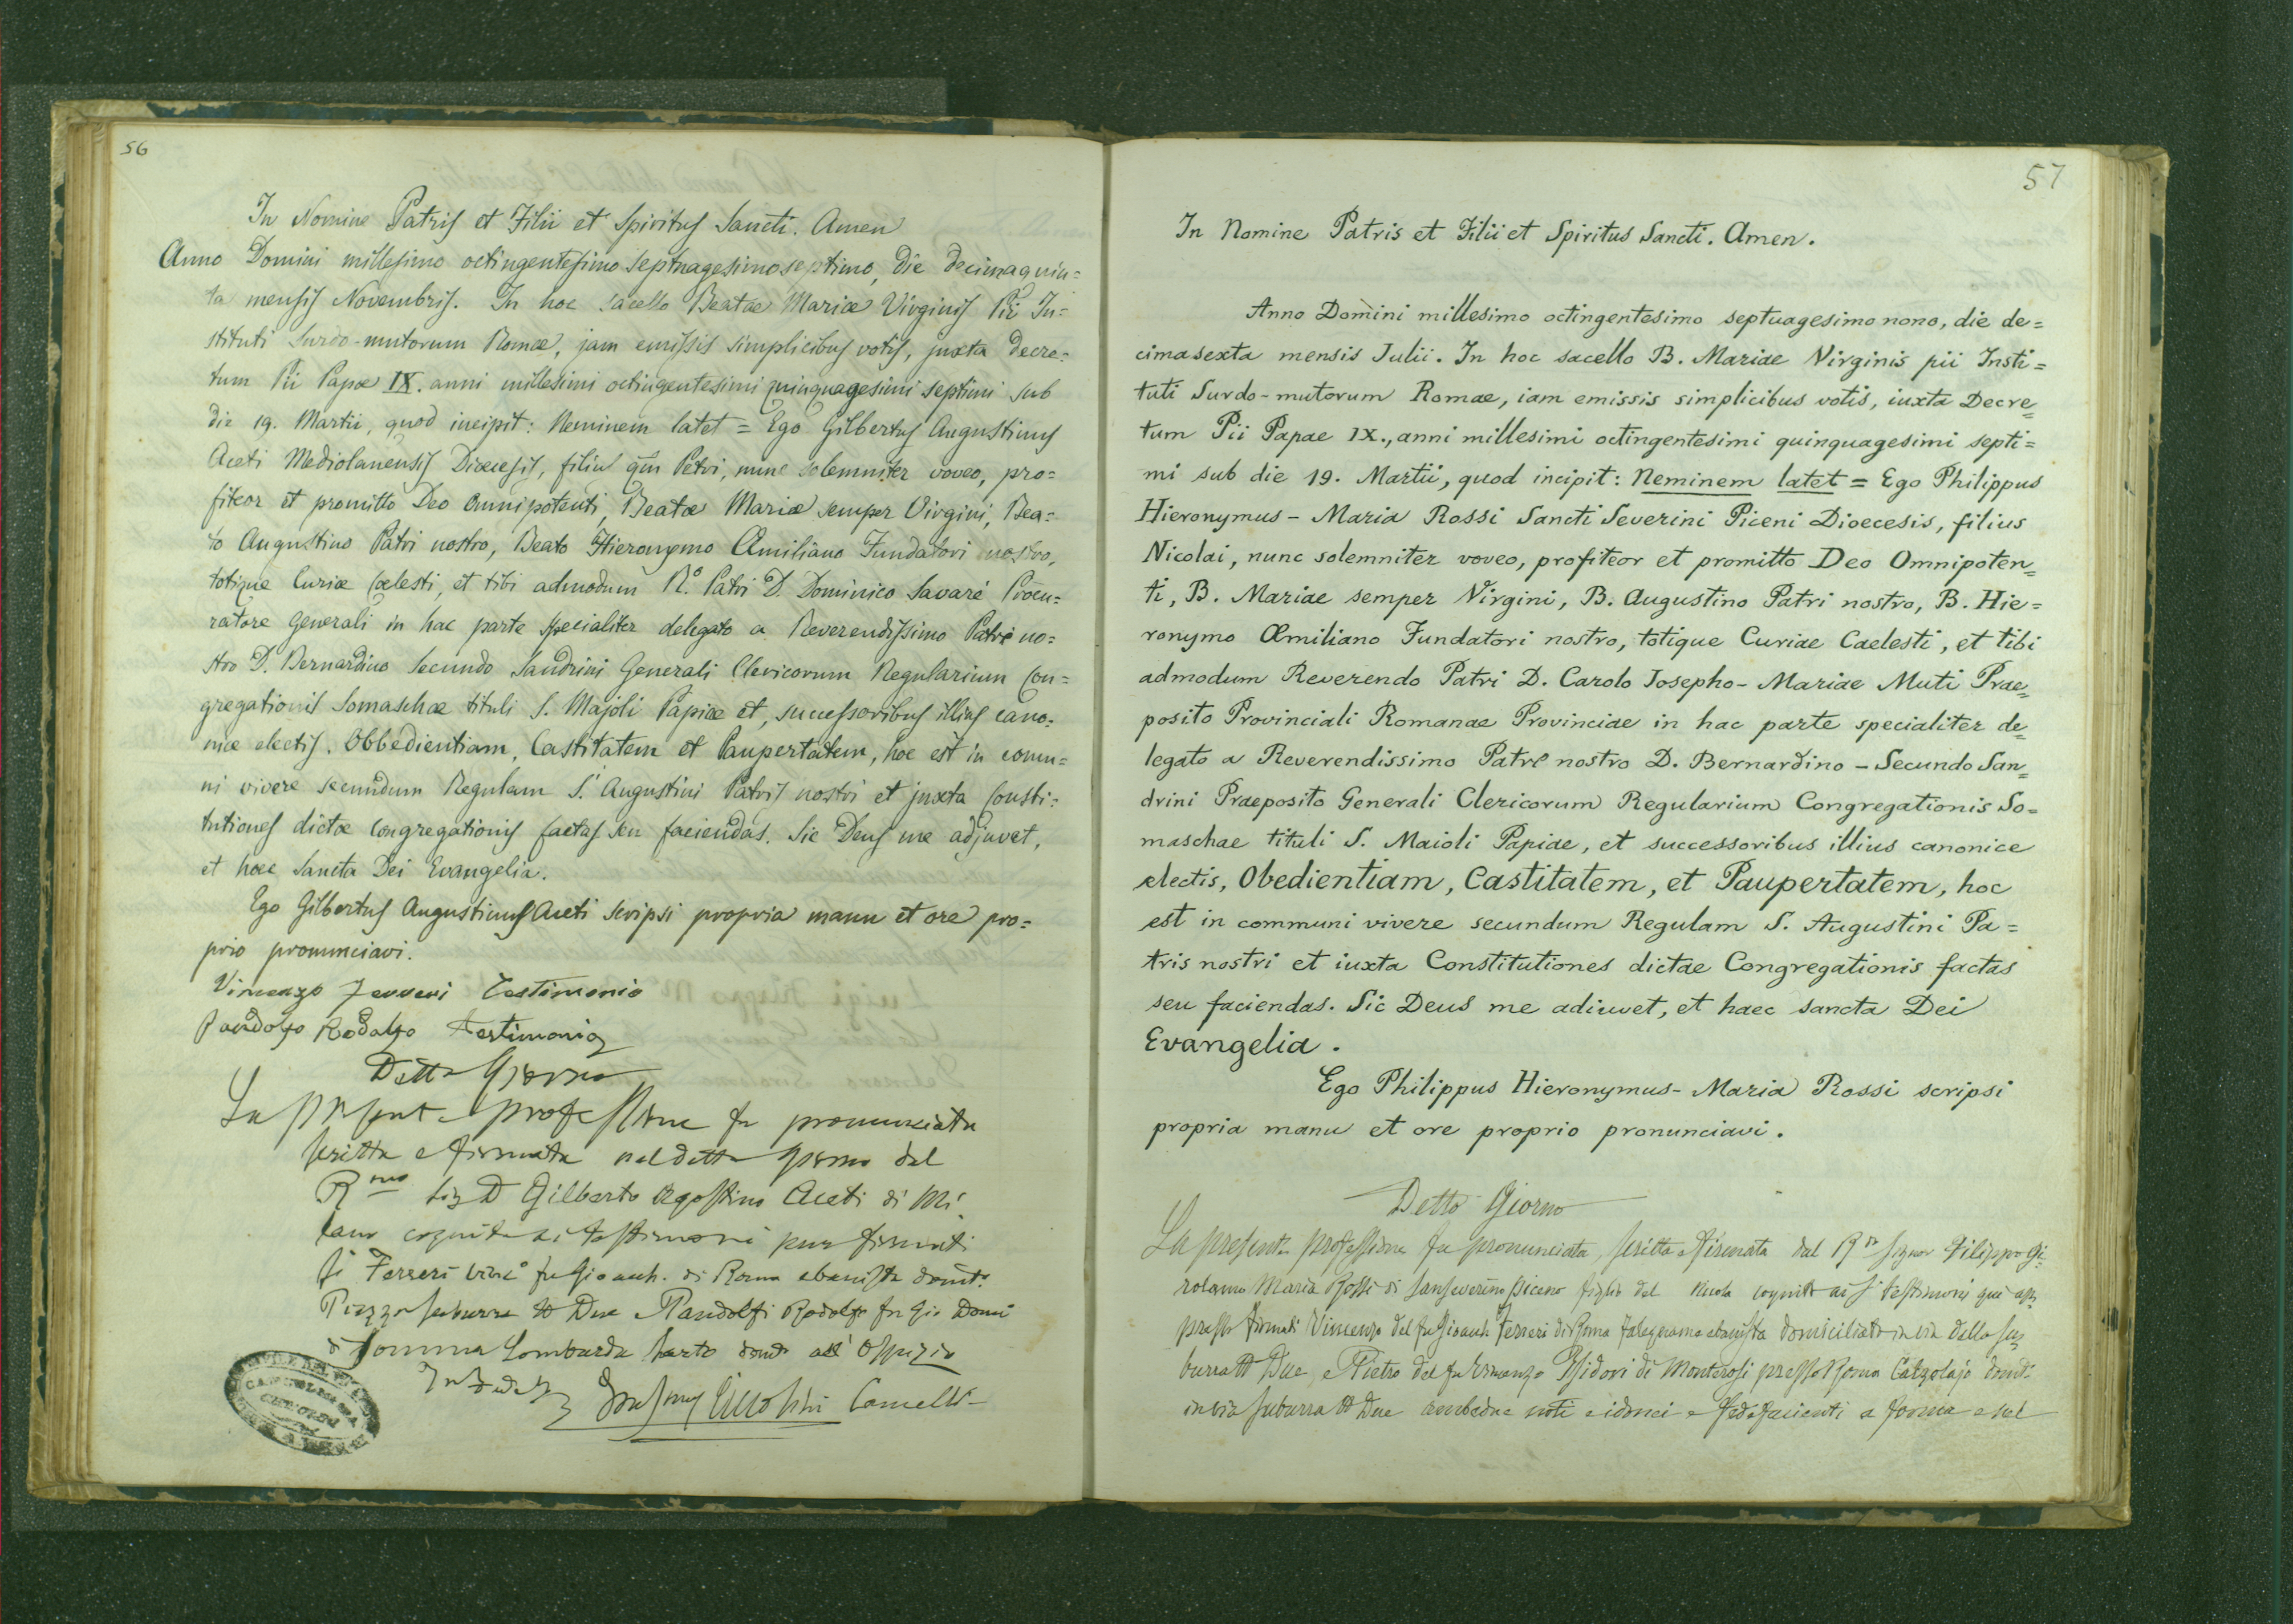 56
In Nomine Patris et Filii et Spiritus Sancti. Amen
Anno Domini millesimo octingentesimo septuagesimoseptimo, die decimaquin=
ta mensis Novembris. In hoc sacello Beatae Mariæ Virginis Pii In=
stituti Surdo-mutorum Romæ, jam emissis simplicibus votis, juxta Decre=
tum Pii Papæ IX. anni millesimi octingentesimi quinquagesimi septimi sub
die 19. Martii, quod incipit: Neminem latet = Ego Gilbertus Augustinus
Aceti Mediolanensis Diœcesis, filius qm̃ Petri, nunc solemniter voveo, pro=
fiteor et promitto Deo Omnipotenti, Beatæ Mariæ semper Virgini, Bea=
to Augustino Patri nostro, Beato Hieronymo Æmiliano Fundatori nostro,
totique Curiæ Cœlesti, et tibi admodum R.º Patri D. Dominico Savaré Procu=
ratore Generali in hac parte specialiter delegato a Reverendissimo Patre no=
stro D. Bernardino Secundo Sandrini Generali Clericorum Regularium Con=
gregationis Somaschæ tituli S. Majoli Papiæ et, successoribus illius cano=
nice electis. Obbedientiam, Castitatem et Paupertatem, hoc est in comu=
ni vivere secundum Regulam S. Augustini Patris nostri et juxta Consti=
tutiones dictæ Congregationis factas seu faciendas. Sic Deus me adjuvet,
et hæc Sancta Dei Evangelia.
Ego Gilbertus Augustinus Aceti scripsi propria manu et ore pro=
prio pronunciavi.
Vincenzo Ferreri Testimonio
Pandolfo Rodolfo Testimonio
Detto Giorno
La presente professione fu pronunciata
scritta e firmata nel detto giorno dal
R.mo Sig D Gilberto Agostino Aceti di Mi
lano cognito ai testimoni pure firmati
Ferreri Vinc.º fu Gioach. di Roma ebanista domt.º
Piazza Suburra Due Pandolfi Rodolfo fu Gio
di Somma Lombarda Sarto all'Ospizio
In Fede
57
In Nomine Patris et Filii et Spiritus Sancti. Amen.
Anno Domini millesimo octingentesimo septuagesimo nono, die de=
cimasexta mensis Julii. In hoc sacello B. Mariae Virginis pii Insti=
tuti Surdo-mutorum Romae, iam emissis simplicibus votis, iuxta Decre=
tum Pii Papae IX., anni millesimi octingentesimi quinquagesimi septi=
mi sub die 19. Martii, quod incipit: Neminem latet = Ego Philippus
Hieronymus-Maria Rossi Sancti Severini Piceni Dioecesis, filius
Nicolai, nunc solemniter voveo, profiteor et promitto Deo Omnipoten=
ti, B. Mariae semper Virgini, B. Augustino Patri nostro, B. Hie=
ronymo Æmiliano Fundatori nostro, totique Curiae Caelesti, et tibi
admodum Reverendo Patri D. Carolo Josepho-Mariae Muti Prae=
posito Provinciali Romanae Provinciae in hac parte specialiter de=
legato a Reverendissimo Patre nostro D. Bernardino-Secundo San=
drini Praeposito Generali Clericorum Regularium Congregationis So=
maschae tituli S. Maioli Papiae, et successoribus illius canonice
electis, Obedientiam, Castitatem, et Paupertatem, hoc
est in communi vivere secundum Regulam S. Augustini Pa=
tris nostri et iuxta Constitutiones dictae Congregationis factas
seu faciendas. Sic Deus me adiuvet, et haec sancta Dei
Evangelia.
Ego Philippus Hieronymus-Maria Rossi scripsi
propria manu et ore proprio pronunciavi.
Detto Giorno
La presente professione fu pronunciata, scritta e firmata dal R.do Signor Filippo Gi=
rolamo Maria Rossi di Sanseverino Piceno figlio del Nicola cognito ai testimonj qui ap=
presso firmati Vincenzo del fu Gioach Ferreri di Roma Falegname ebanista domiciliato in via della Su=
burra Due, e Pietro del fu Vincenzo Isidori di Monterosi presso Roma Calzolajo domt.
in via Suburra Due ambedue noti e idonei e fedefacienti a forma e nel